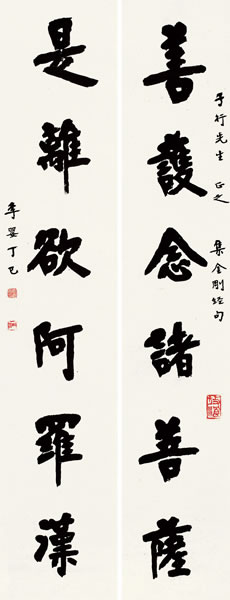 于行先生 正之 集金剛經句
善護念諸菩薩
是離欲阿羅漢
丁巳